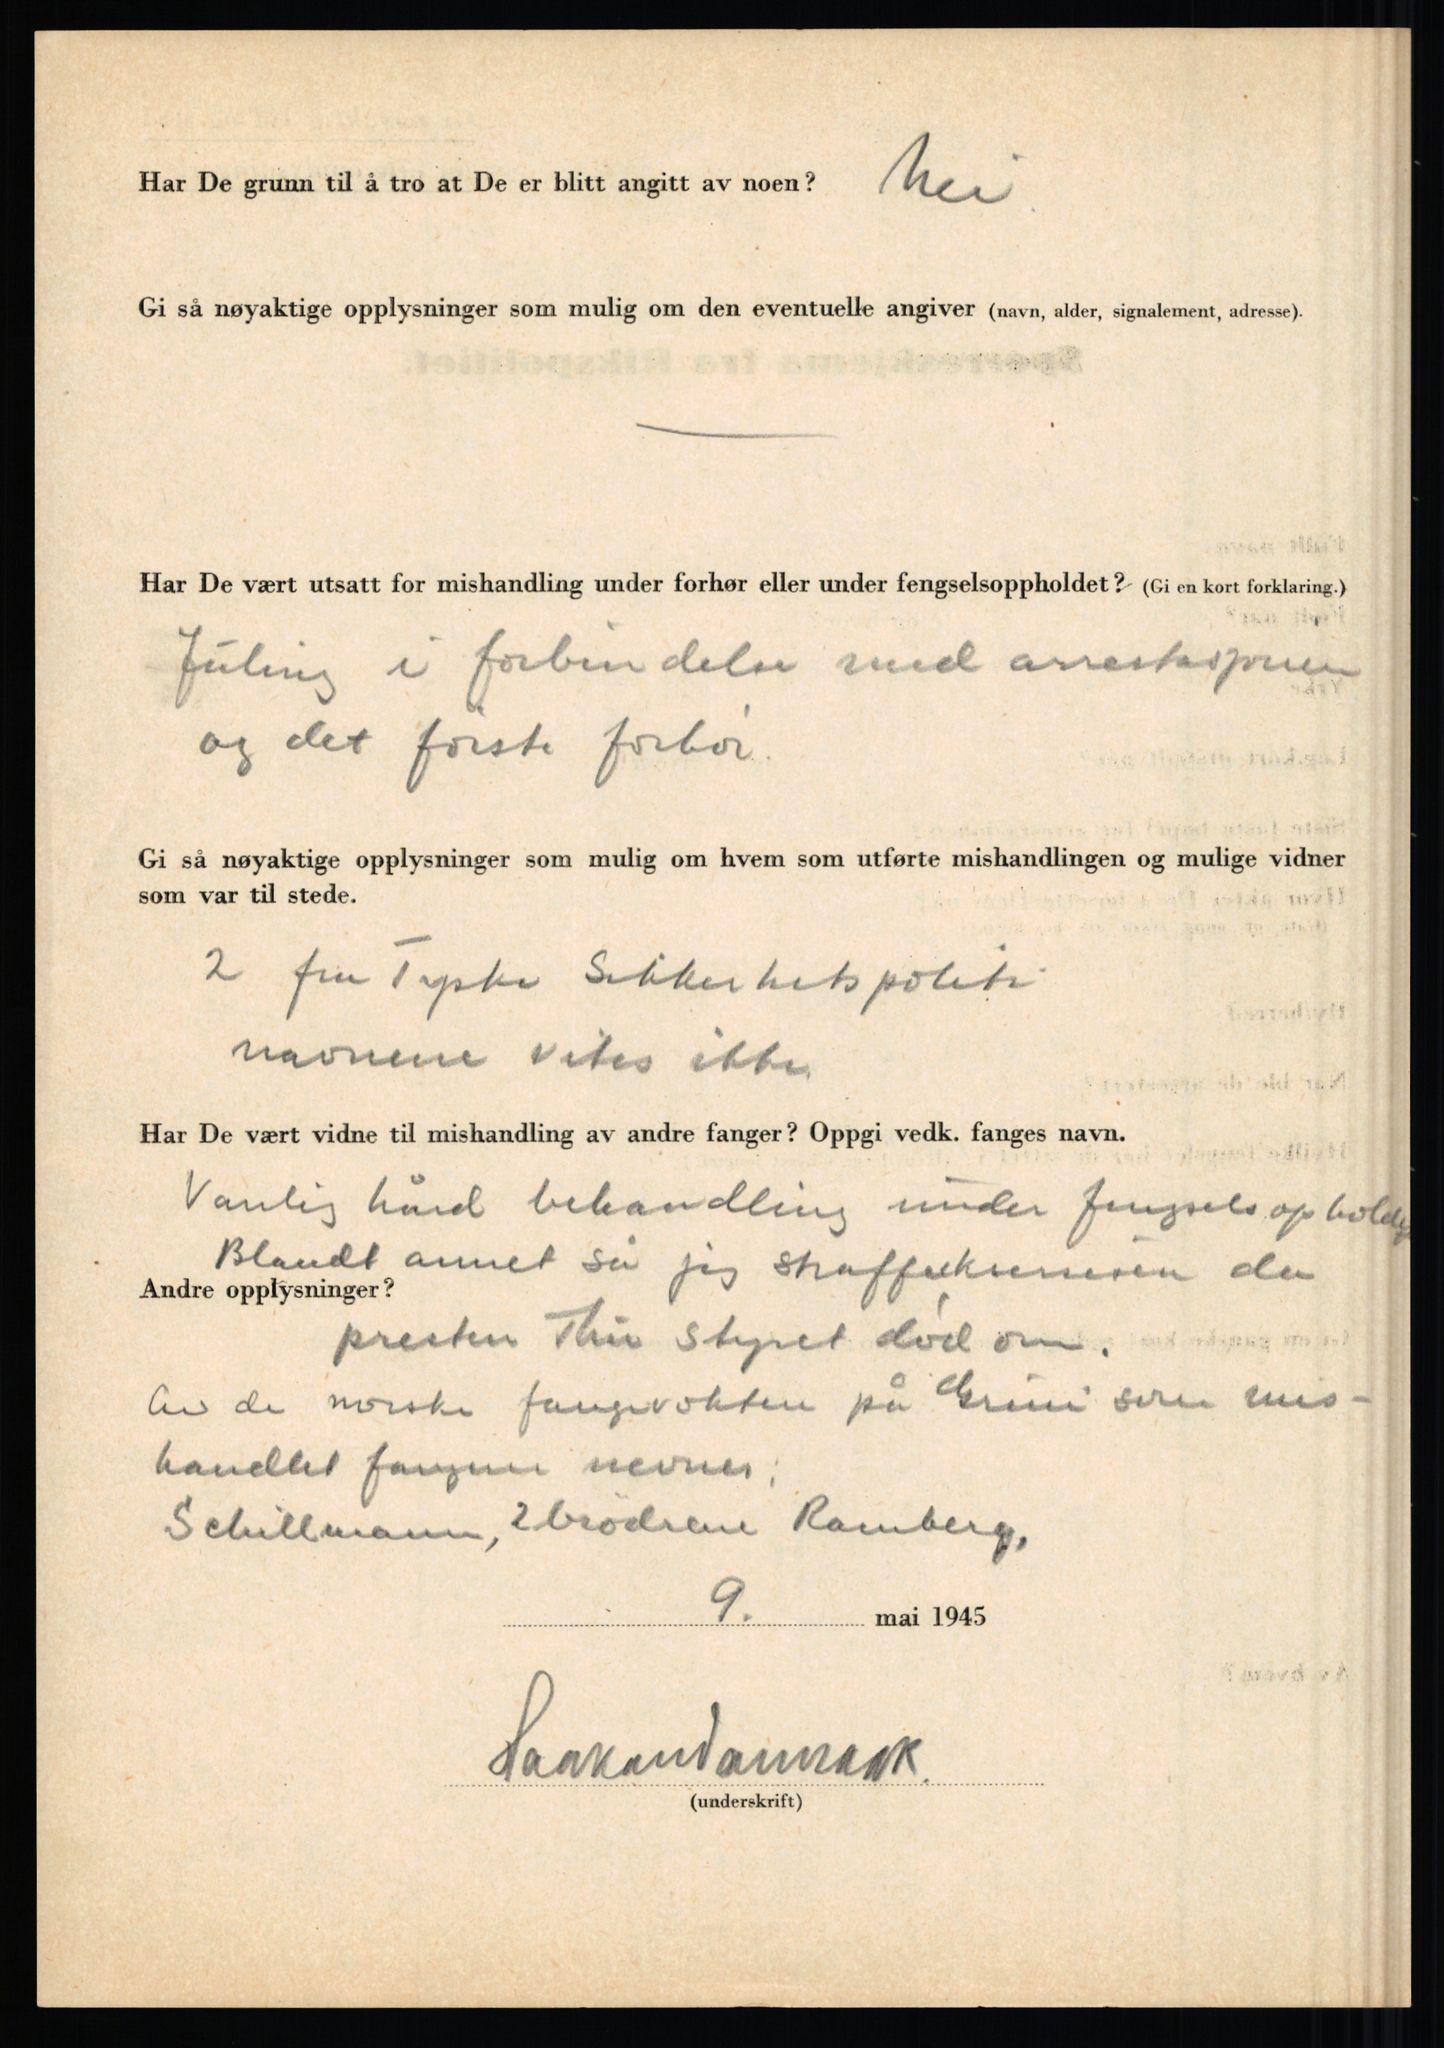 Har De grunn til å tro at De er blitt angitt av noen? Nei.
Gi så nøyaktige opplysninger som mulig om den eventuelle angiver (navn, alder, signalement, adresse).
Har De vært utsatt for mishandling under forhør eller under fengselsoppholdet? (Gi en kort forklaring.)
Juling i forbindelse med arrestasjonen
og det første forhør.
Gi så nøyaktige opplysninger som mulig om hvem som utførte mishandlingen og mulige vidner
som var til stede.
2 fra Tyske Sikkerhetspoliti
navnene vites ikke.
Har De vært vidne til mishandling av andre fanger? Oppgi vedk. fanges navn.
Vanlig hård behandling under fengselsopholdet
Blandt annet så jeg straffeksersisen da
Andre opplysninger?
presten Thu styrtet død om.
Av de norske fangevokten på Grini som mis-
handlet fangene nevnes:
Schillmann, 2 brødrene Ramberg,
9. mai 1945
Haakon Danmark.
(underskrift)